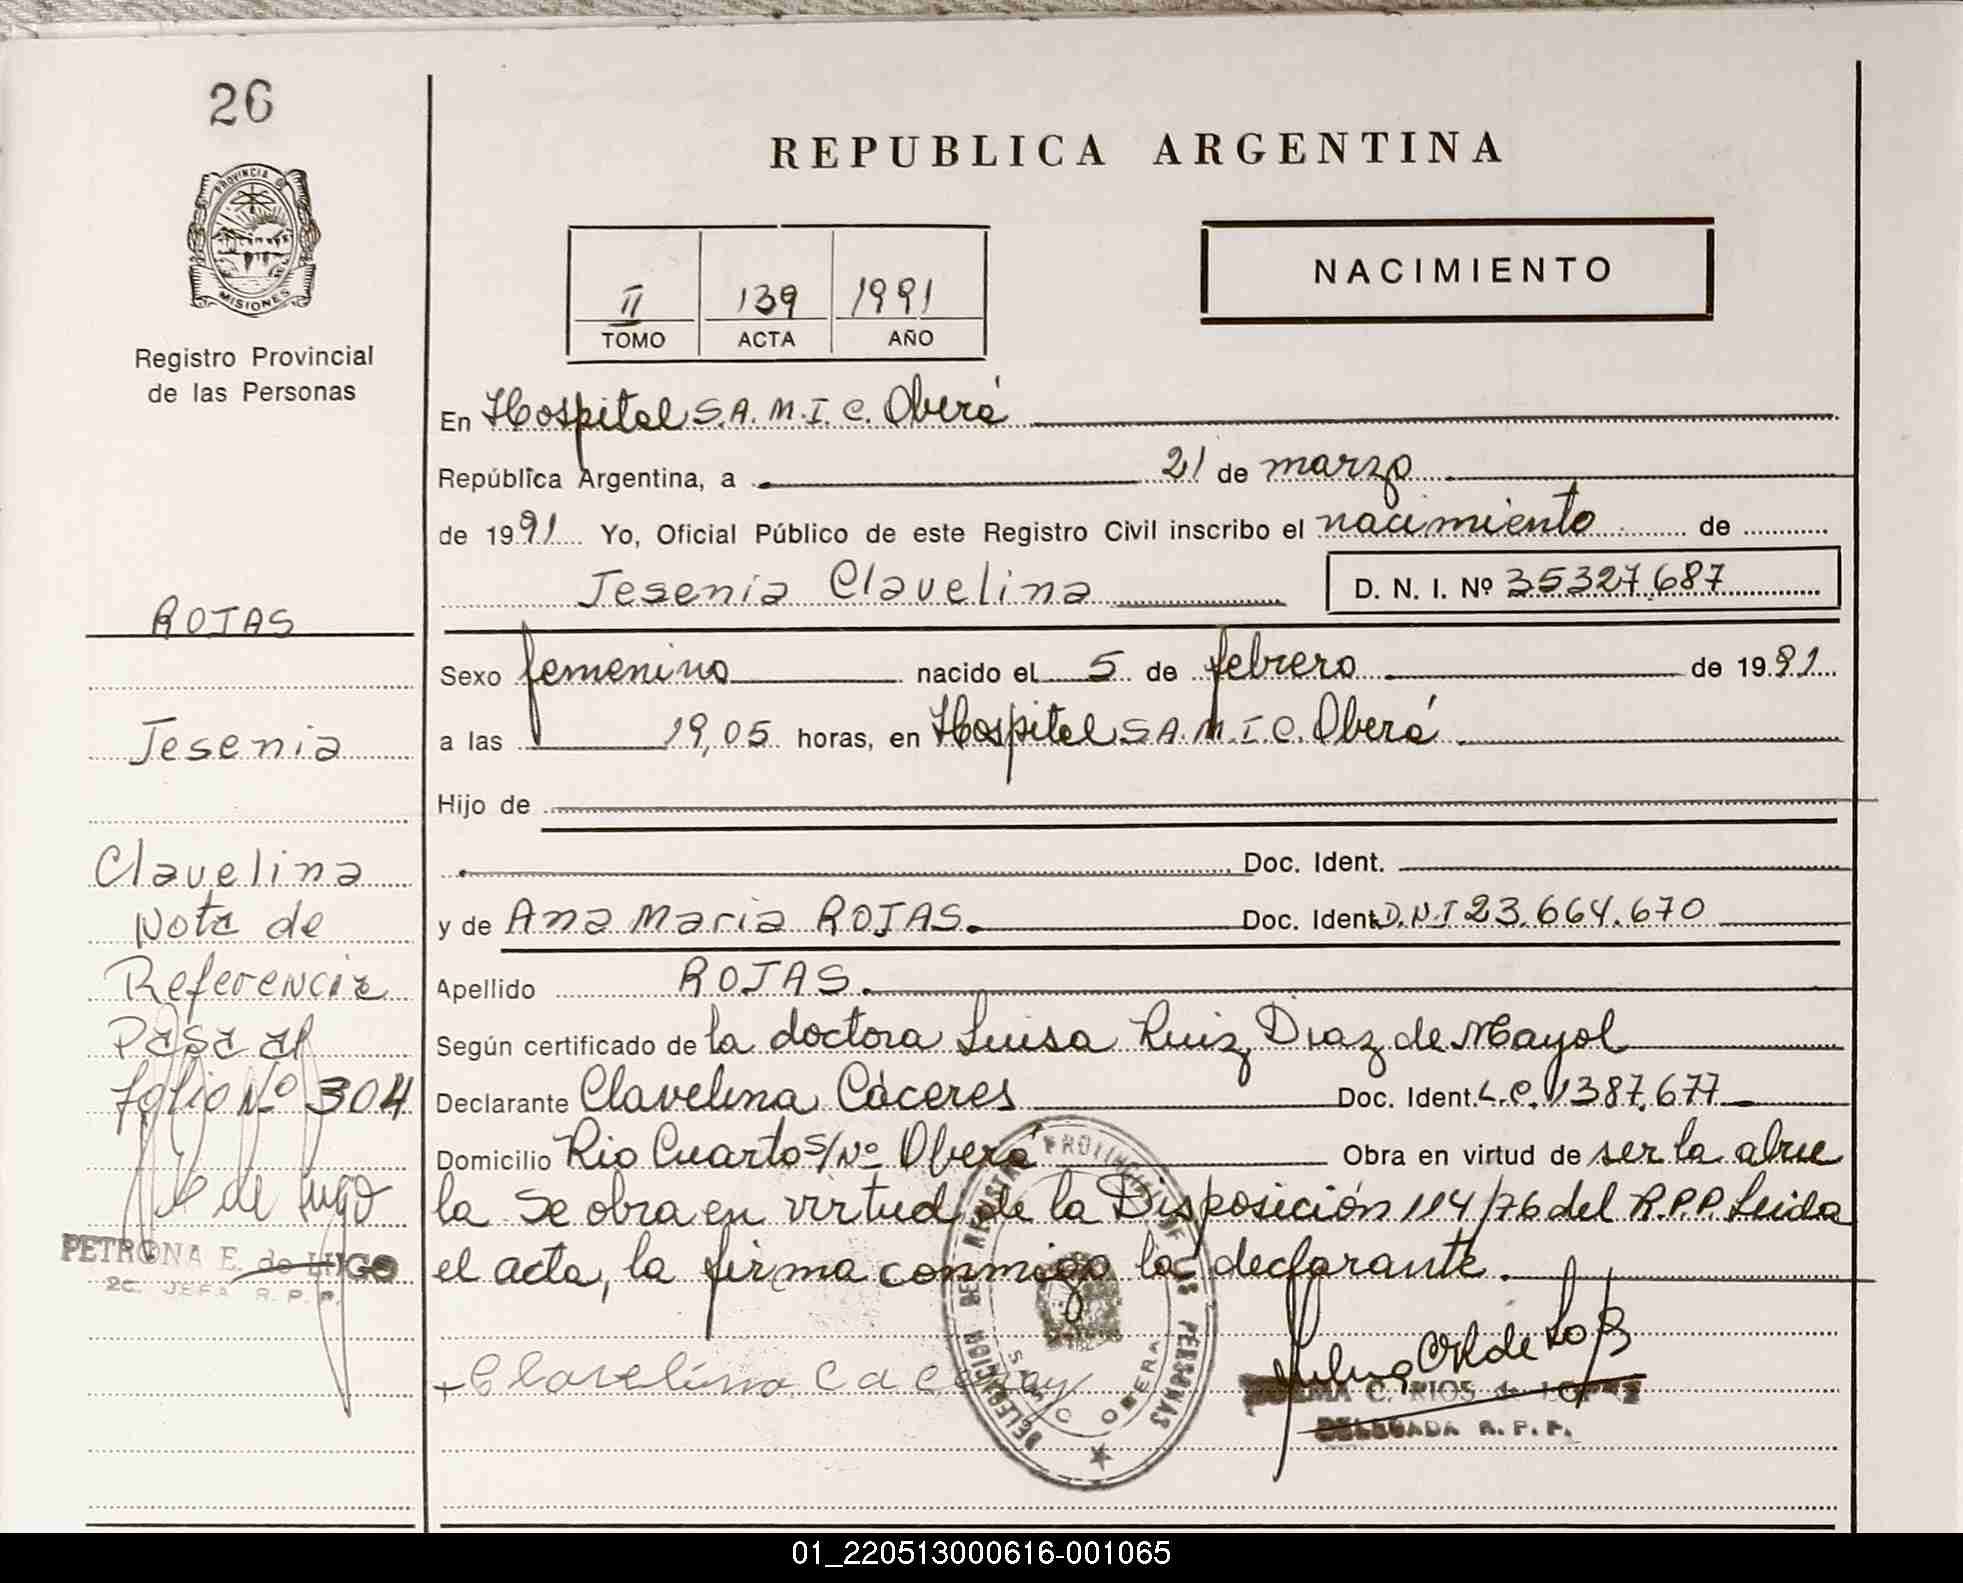 26
REPUBLICA ARGENTINA
PROVINCIA DE
MISIONES
Registro Provincial
de las Personas
II 139 1991
TOMO ACTA AÑO
NACIMIENTO
En Hospital S.A.M.I.C. Oberá
República Argentina, a 21 de marzo
de 1991 Yo, Oficial Público de este Registro Civil inscribo el nacimiento de
Jesenia Clavelina D. N. I. Nº 35327.687
Sexo femenino nacido el 5 de febrero de 1991
a las 19,05 horas, en Hospital S.A.M.I.C. Oberá
Hijo de
Doc. Ident.
y de Ana Maria ROJAS. Doc. Ident. D.N.I 23.664.670
Apellido ROJAS.
Según certificado de la doctora Luisa Ruiz Diaz de Mayol
Declarante Clavelina Cáceres Doc. Ident. L.C. 1387.677
Domicilio Rio Cuarto S/Nº Oberá Obra en virtud de ser la abue
la Se obra en virtud de la Disposición 114/76 del R.P.P. Leida
el acta, la firma conmigo la declarante.
ROJAS
Jesenia
Clavelina
Nota de
Referencia
Pasa al
folio Nº 304
PETRONA E. de LUGO
2a. JEFA R. P. P.
+Clavelina
DELEGACION DEL REGISTRO PROVINCIAL DE LAS PERSONAS
SAMIC OBERA
C. RIOS de LOPEZ
DELEGADA R. P. P.
01_220513000616-001065